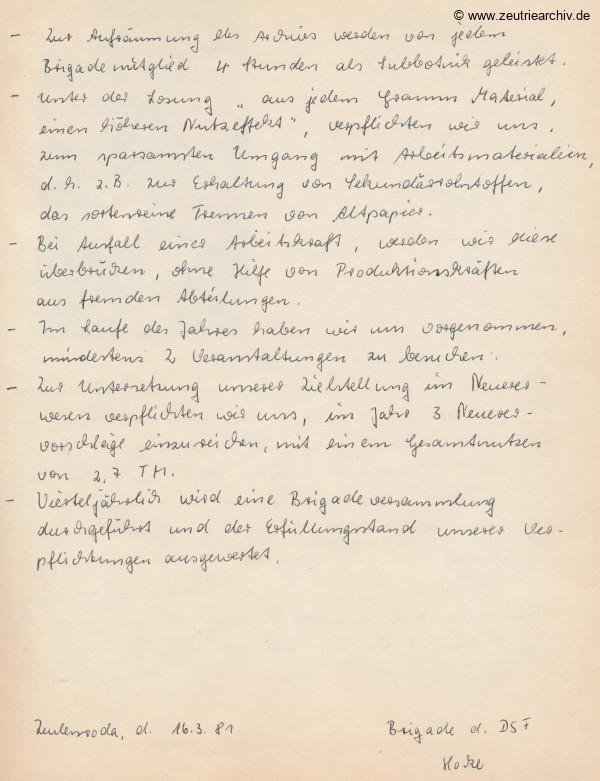 © www.zeutriearchiv.de
- Zur Aufräumung des Archivs werden von jedem
Brigademitglied 4 Stunden als Subbotnik geleistet.
- Unter der Losung „aus jedem Gramm Material,
einen höheren Nutzeffekt", verpflichten wir uns,
zum sparsamsten Umgang mit Arbeitsmaterialien,
d.h. z.B. zur Erhaltung von Sekundärrohstoffen,
das sortenreine Trennen von Altpapier.
- Bei Ausfall einer Arbeitskraft, werden wir diese
überbrücken, ohne Hilfe von Produktionskräften
aus fremden Abteilungen.
- Im Laufe des Jahres haben wir uns vorgenommen,
mindestens 2 Veranstaltungen zu besuchen.
- Zur Untersetzung unserer Zielstellung im Neuerer-
wesen verpflichten wir uns, im Jahr 3 Neuerer-
vorschläge einzureichen, mit einem Gesamtnutzen
von 2,7 TM.
- Vierteljährlich wird eine Brigadeversammlung
durchgeführt und der Erfüllungsstand unserer Ver-
pflichtungen ausgewertet.
Zeulenroda, d. 16.3.81
Brigade d. DSF